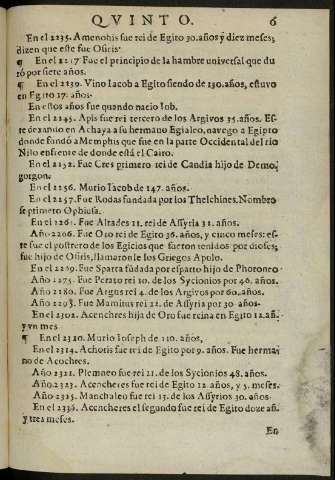 QVINTO. 6
En el 2235. Amenohis fue rei de Egito 30. años y diez meses,
dizen que este fue Osiris.
¶ En el 2217. Fue el principio de la hambre universal que du
ró por siete años.
¶ En el 2139. Vino Iacob a Egito siendo de 130. años, estuvo
en Egito 17. años.
En estos años fue quando nacio Iob.
En el 2245. Apis fue rei tercero de los Argivos 35. años. Es-
te dexando en Achaya a su hermano Egialeo, navego a Egipto
donde fundó a Memphis que fue en la parte Occidental del rio
Nilo enfrente de donde está el Cairo.
En el 2252. Fue Cres primero rei de Candia hijo de Demo-
gorgon.
En el 2256. Murio Iacob de 147. años.
En el 2257. Fue Rodas fundada por los Thelchines. Nombro
se primero Ophiusa.
En el 2261. Fue Altades 11. rei de Assyria 32. años.
Año 2206. Fue Oro rei de Egito 36. años, y cinco meses: es-
te fue el postrero de los Egicios que fueron tenidos por dioses,
fue hijo de Osiris, llamaronle los Griegos Apolo.
En el 2269. Fue Sparta fũdada por esparto hijo de Phoroneo
Año 2275. Fue Peraso rei 10. de los Sycionios por 46. años.
Año 2280. Fue Argus rei 4. de los Argivos por 60. años.
Año 2293. Fue Mamitus rei 12. de Assyria por 30. años.
En el 2302. Acenchres hija de Oro fue reina en Egito 12. añ.
y vn mes
¶ En el 2310. Murio Ioseph de 110. años,
En el 2314. Achoris fue rei de Egito por 9. años. Fue herma
no de Acochres.
Año 2321. Plemneo fue rei 11. de los Sycionios 48. años.
Año 2323. Acencheres fue rei de Egito 12. años, y 5. meses.
Año 2325. Manchaleo fue rei 13. de los Assyrios 30. años.
En el 2336. Acencheres el segundo fue rei de Egito doze añ.
y tres meses.
En